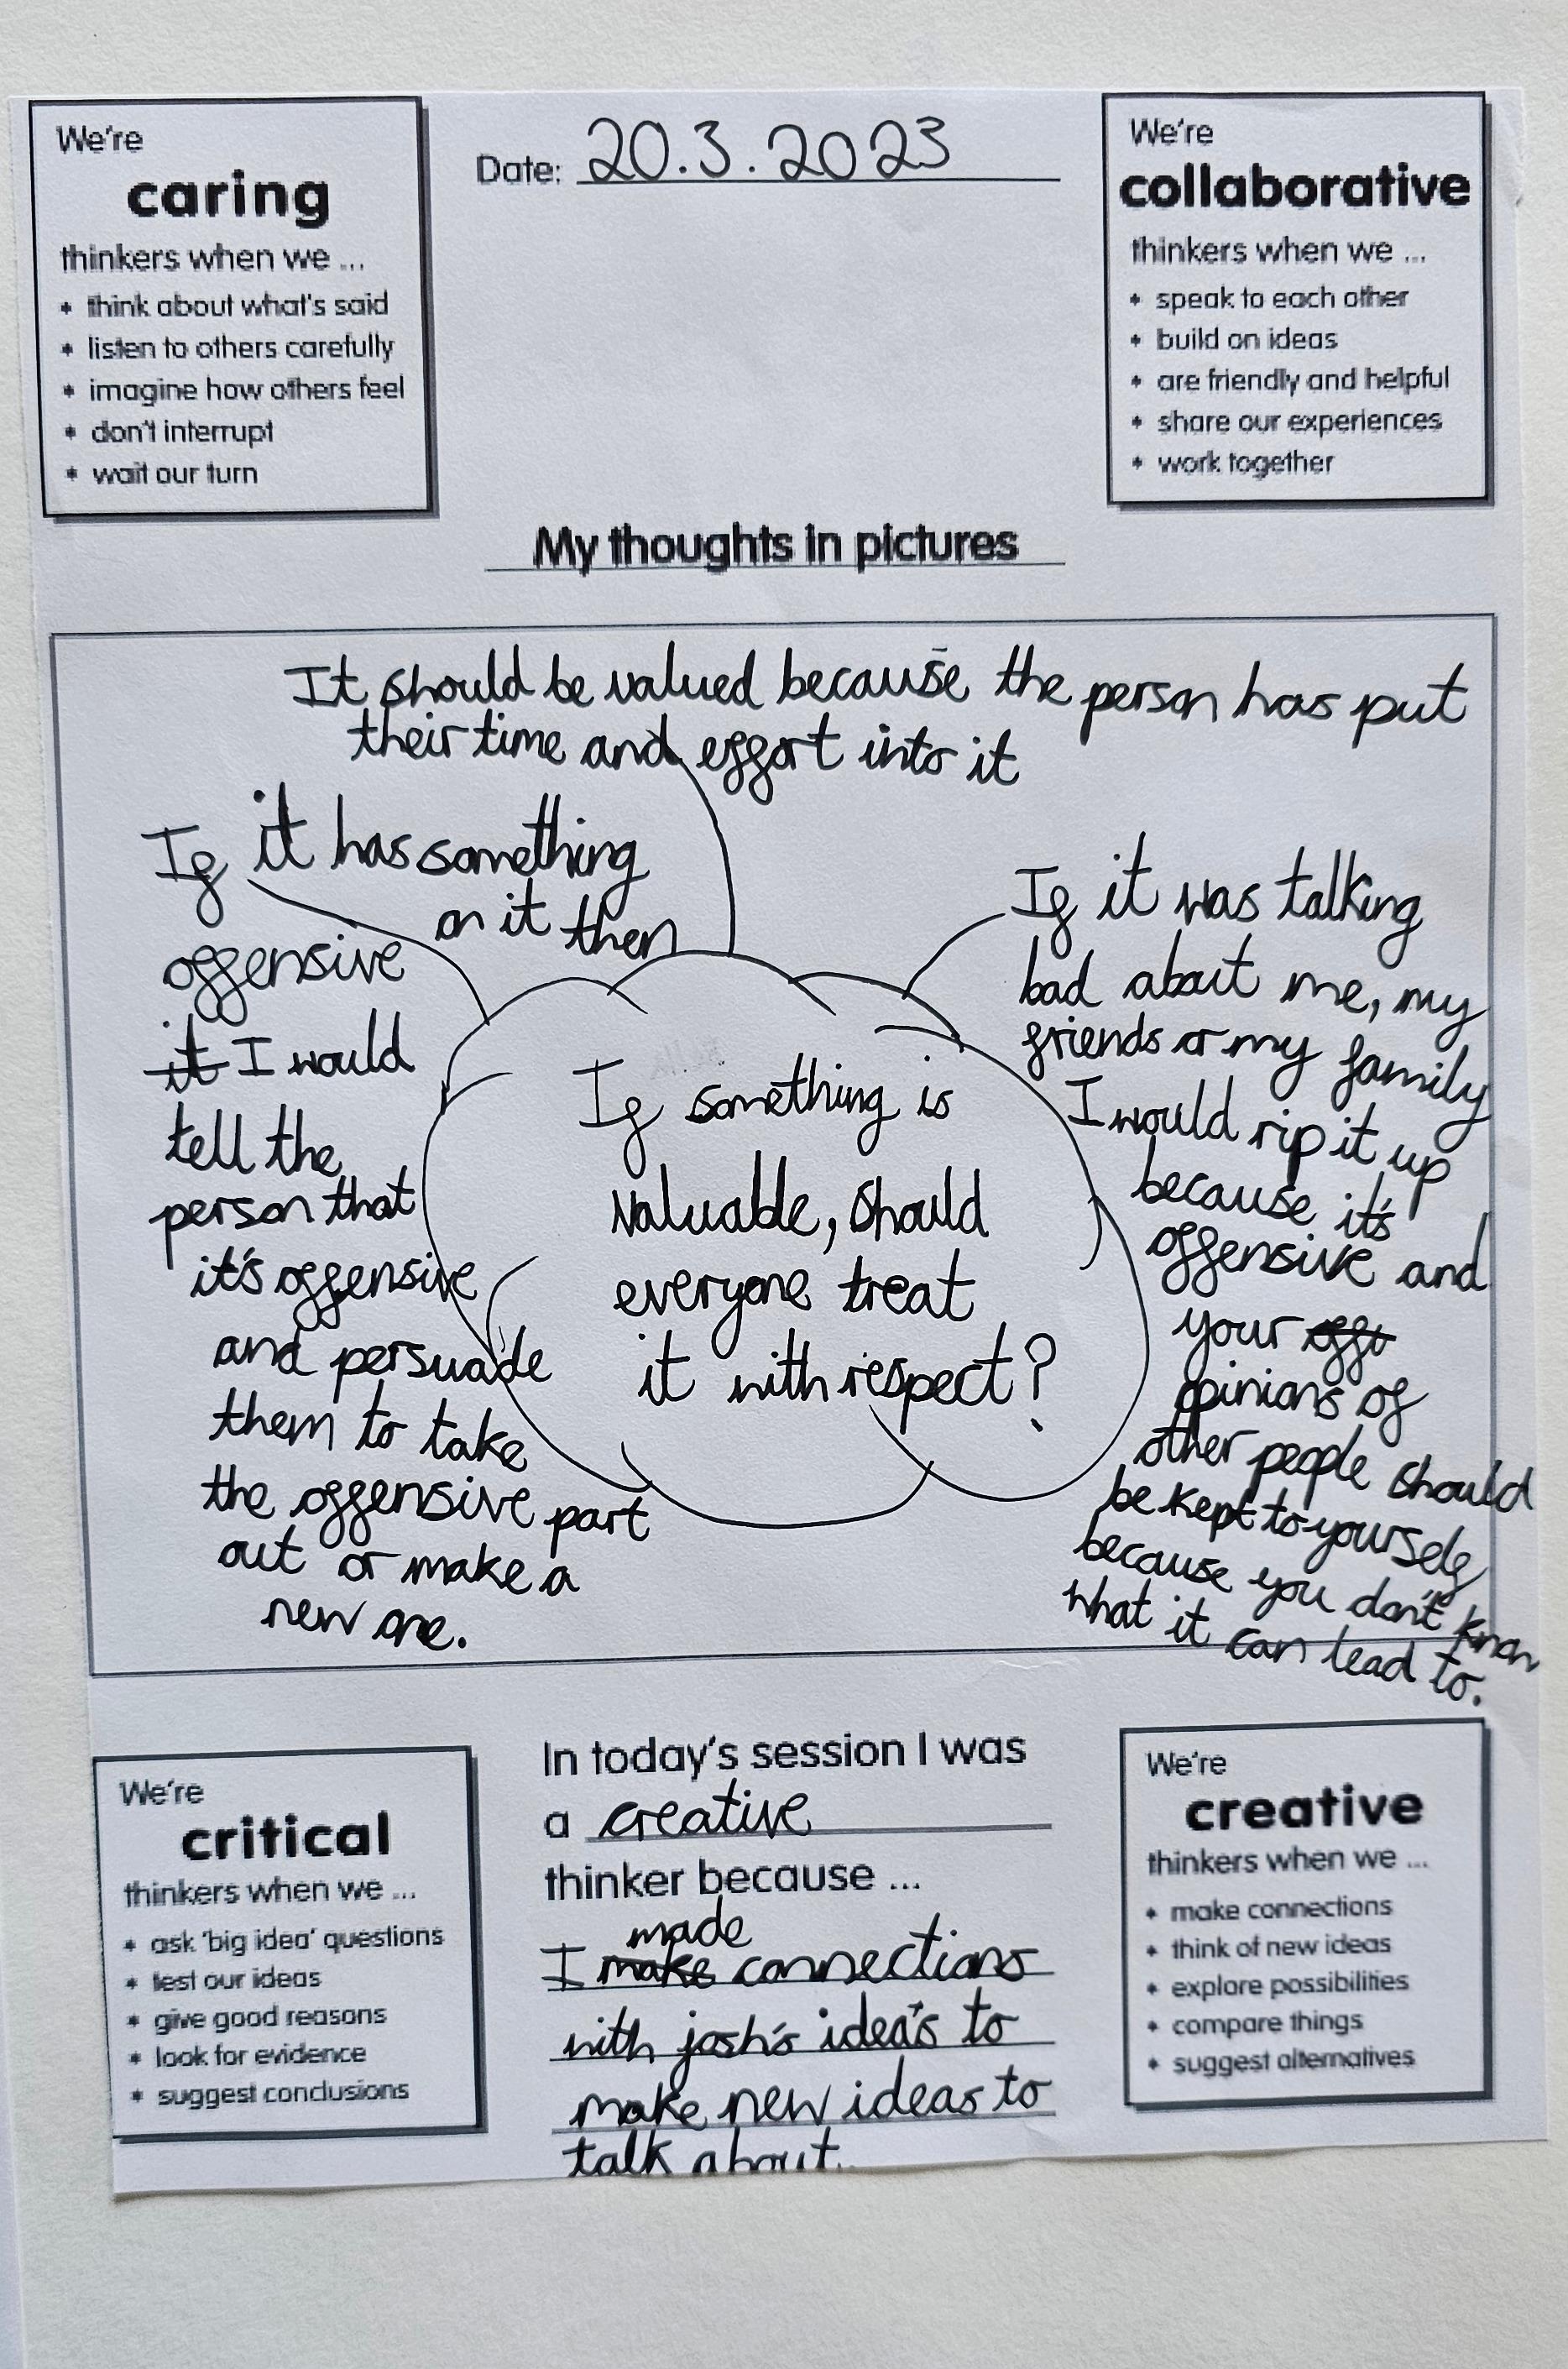 We're
caring
thinkers when we ...
* think about what's said
* listen to others carefully
* imagine how others feel
* don't interrupt
* wait our turn
Date: 20.3.2023
We're
collaborative
thinkers when we ...
* speak to each other
* build on ideas
* are friendly and helpful
* share our experiences
* work together
My thoughts in pictures
It should be valued because the person has put
their time and effort into it
If it has something
on it then
offensive
it I would
tell the
person that
it's offensive
and persuade
them to take
the offensive part
out or make a
new one.
If something is
valuable, should
everyone treat
it with respect?
If it was talking
bad about me, my
friends or my family
I would rip it up
because it's
offensive and
your
opinions of
other people should
be kept to yourself
because you don't know
what it can lead to.
We're
critical
thinkers when we ...
* ask 'big idea' questions
* test our ideas
* give good reasons
* look for evidence
* suggest conclusions
In today's session I was
a creative
thinker because ...
made
I make connections
with josh's idea's to
make new ideas to
talk about.
We're
creative
thinkers when we ...
* make connections
* think of new ideas
* explore possibilities
* compare things
* suggest alternatives